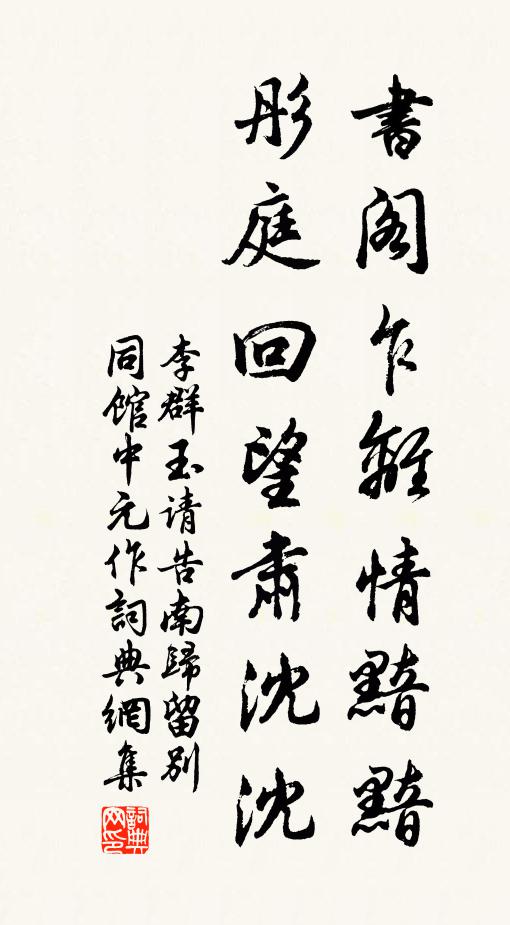 書閣乍離情黯黯
彤庭回望肅沈沈
李群玉请告南歸留别
同館中元作詞典網集
詞典网印